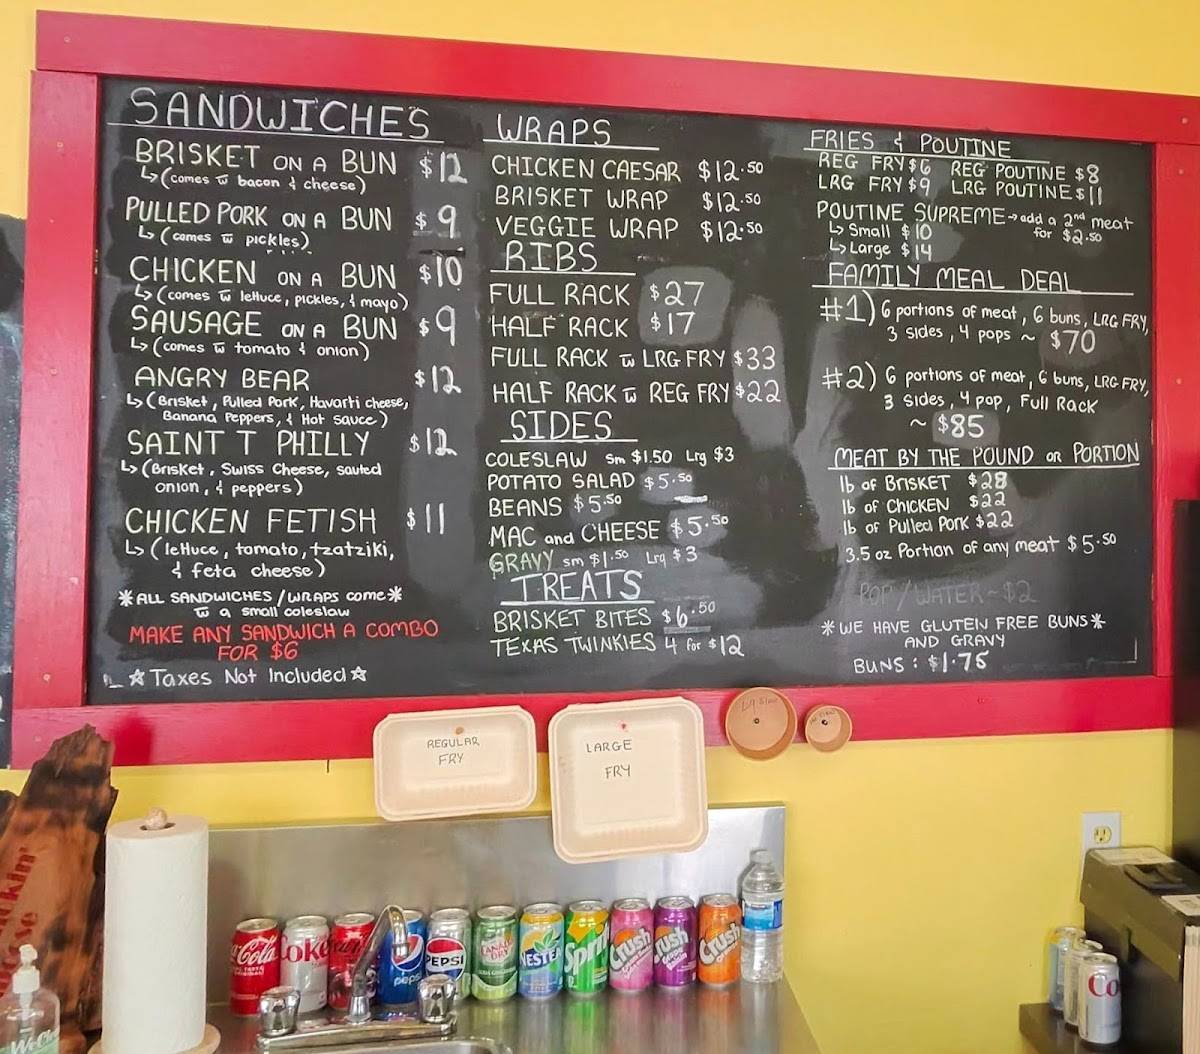 SANDWICHES
BRISKET ON A BUN $12
↳(comes w̄ bacon & cheese)
PULLED PORK ON A BUN $9
↳(comes w̄ pickles)
CHICKEN ON A BUN $10
↳(comes w̄ lettuce, pickles, & mayo)
SAUSAGE ON A BUN $9
↳(comes w̄ tomato & onion)
ANGRY BEAR $12
↳(Brisket, Pulled Pork, Havarti cheese,
Banana Peppers, & Hot sauce)
SAINT T PHILLY $12
↳(Brisket, Swiss Cheese, sauted
onion, & peppers)
CHICKEN FETISH $11
↳(lettuce, tomato, tzatziki,
& feta cheese)
*ALL SANDWICHES/WRAPS come*
w̄ a small coleslaw
MAKE ANY SANDWICH A COMBO
FOR $6
☆Taxes Not Included☆
WRAPS
CHICKEN CAESAR $12.50
BRISKET WRAP $12.50
VEGGIE WRAP $12.50
RIBS
FULL RACK $27
HALF RACK $17
FULL RACK w̄ LRG FRY $33
HALF RACK w̄ REG FRY $22
SIDES
COLESLAW Sm $1.50 Lrg $3
POTATO SALAD $5.50
BEANS $5.50
MAC and CHEESE $5.50
GRAVY sm $1.50 Lrg $3
TREATS
BRISKET BITES $6.50
TEXAS TWINKIES 4 for $12
FRIES & POUTINE
REG FRY $6 REG POUTINE $8
LRG FRY $9 LRG POUTINE $11
POUTINE SUPREME→add a 2nd meat
for $2.50
↳Small $10
↳Large $14
FAMILY MEAL DEAL
#1) 6 portions of meat, 6 buns, LRG FRY,
3 sides, 4 pops ~ $70
#2) 6 portions of meat, 6 buns, LRG FRY,
3 sides, 4 pop, Full Rack
~ $85
MEAT BY THE POUND or PORTION
lb of BRISKET $28
lb of CHICKEN $22
lb of Pulled Pork $22
3.5 oz Portion of any meat $5.50
POP/WATER~$2
*WE HAVE GLUTEN FREE BUNS*
AND GRAVY
BUNS: $1.75
REGULAR
FRY
LARGE
FRY
Coca-Cola
Coke
pepsi
PEPSI
CANADA
DRY
NESTEA
Sprite
Crush
Crush
Crush